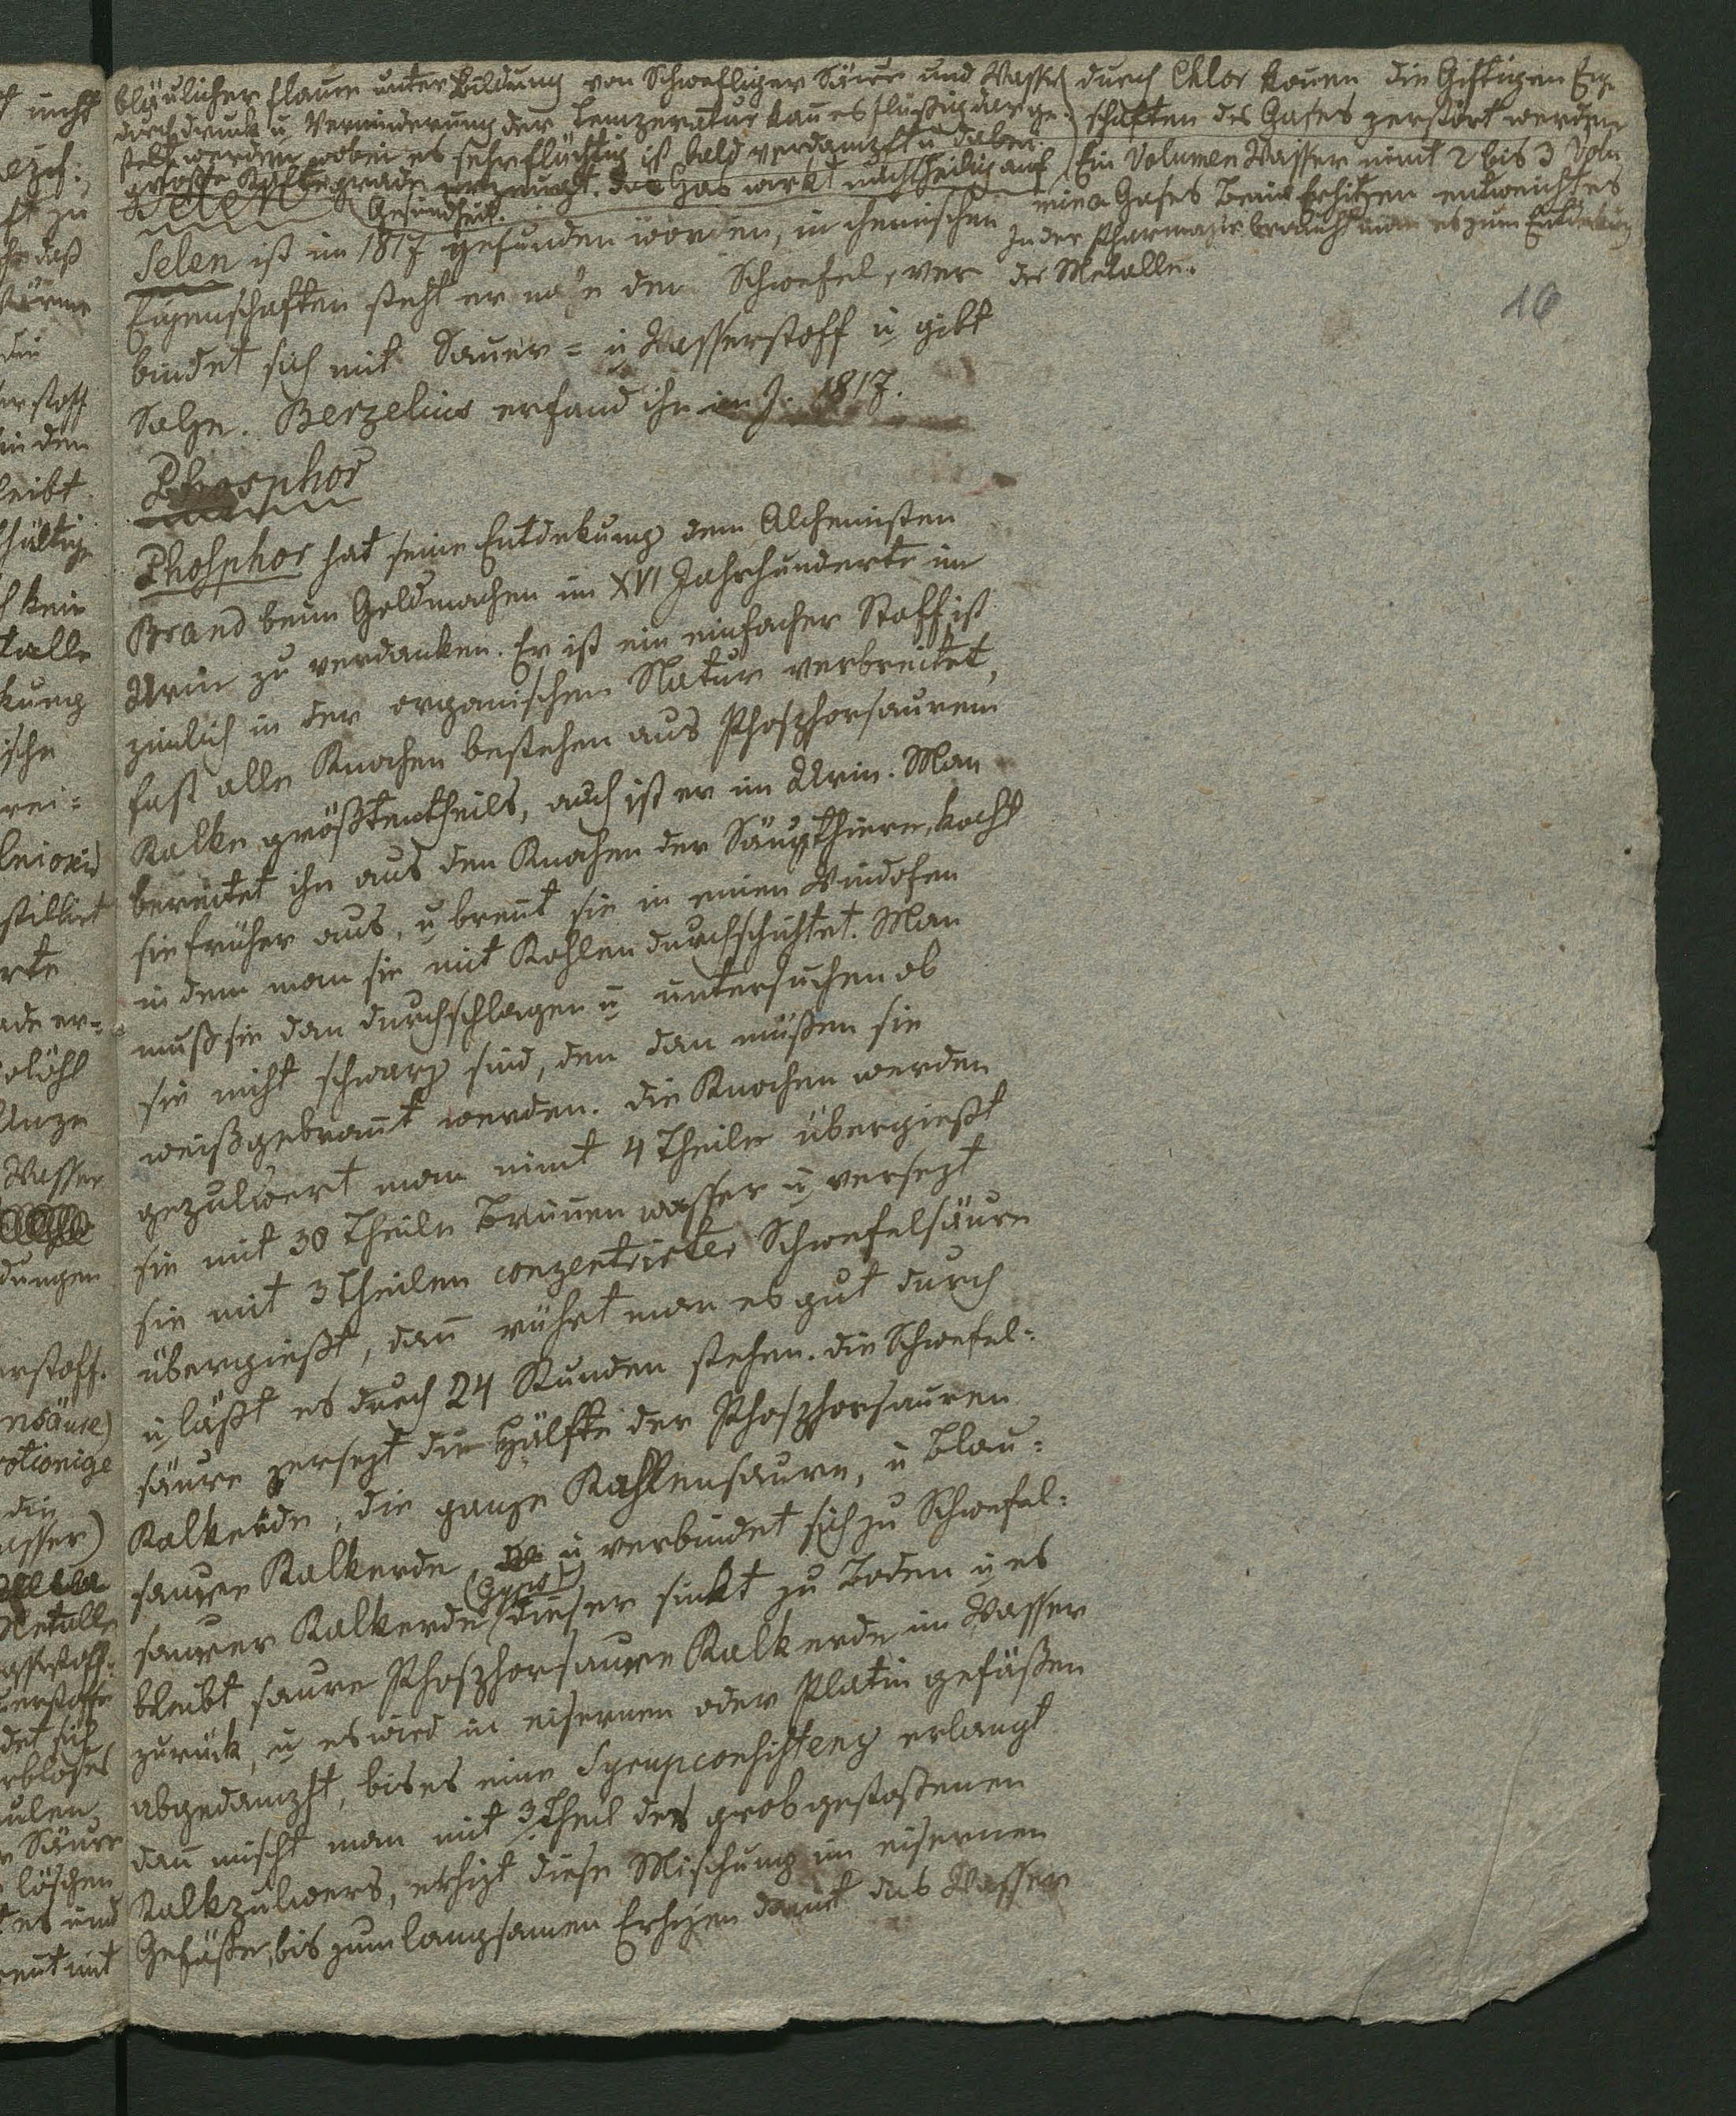 bläulicher Flame unter Bildung von Schwefliger Säure und Wasser
durch druck u Verminderung der Temperatur kan es flüßig darge-
stellt werden wobei es sehr flüchtig ist bald verdampft u dabei
große Kältegrade erzeugt. das Gas wirkt nachtheilig auf
Gesundheit.
durch Chlor könen die Giftigen Eig
schaften des Gases zerstört werden
Ein Volumen Wasser nimt 2 bis 3 Volu
mina Gases Beim Erhitzen entweicht es
In der Pharmazie braucht man es zum Entdekung
der Metalle.
16
Selen
Selen ist im 1817 gefunden worden, in chemischen
Eigenschaften steht er nahe dem Schwefel, ver
bindet sich mit Sauer= u Wasserstoff u gibt
Salze. Berzelius erfand ihn im J. 1817.
Phosphor
Phosphor hat seine Entdekung dem Alchemisten
Brand beim Goldmachen im XVI Jahrhunderte im
Urin zu verdanken. Er ist ein einfacher Stoff ist
zimlich in der organischen Natur verbreitet,
fast alle Knochen bestehen aus Phosphorsaurem
Kalke größtentheils, auch ist er im Urin. Man
bereitet ihn aus den Knochen der Säugthiere, kocht
sie früher aus, u brent sie in einen Windofen
indem man sie mit Kohlen durchschichtet. Man
muß sie dan durchschlagen u untersuchen ob
sie nicht schwarz sind, den dan müßen sie
weißgebrant werden. die Knochen werden
gepulvert man nimt 4 Theile übergießt
sie mit 30 Theile Brunen wasser u versezt
sie mit 3 Theilen conzentrirter Schwefelsäure
übergießt, dan rührt man es gut durch
u läßt es durch 24 Stunden stehen. die Schwefel=
säure zersezt die Hälfte der Phosphorsauren
Kalkerde, die ganze Kohlensaure, u Blau=
saure Kalkerde u verbindet sich zu Schwefel=
saurer Kalkerde (Gyps) dieser sinkt zu Boden u es
bleibt saure Phosphorsaure Kalkerde im Wasser
zurück, u es wird in eisernen oder Platin gefäßen
abgedampft, bis es eine Syrupconsistenz erlangt
dan mischt man mit 3 Theil des grob gestoßenen
Kalkpulvers, erhizt diese Mischung im eisernen
Gefäße, bis zum langsamen Erhizen damit das Wasser